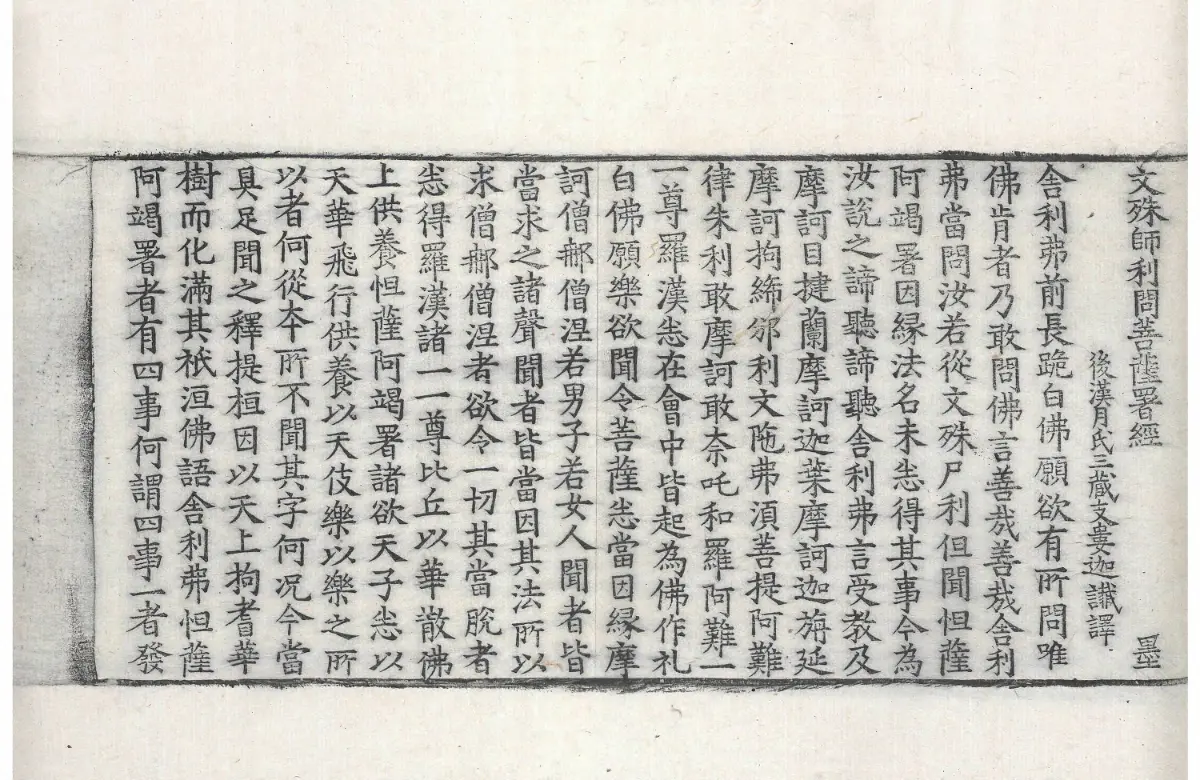 文殊師利問菩薩署經 墨
後漢月氏三藏支婁迦讖譯
舍利弗前長跪白佛願欲有所問唯
佛肯者乃敢問佛言善哉善哉舍利
弗當問汝若從文殊尸利但聞怛薩
阿竭署因緣法名未悉得其事今為
汝說之諦聽諦聽舍利弗言受教及
摩訶目揵蘭摩訶迦葉摩訶迦旃延
摩訶拘絺邠利文陁弗湏菩提阿難
律朱利敢摩訶敢奈吒和羅阿難一
一尊羅漢悉在會中皆起為佛作礼
白佛願樂欲聞令菩薩悉當因緣摩
訶僧䣯僧涅若男子若女人聞者皆
當求之諸聲聞者皆當因其法所以
求僧䣯僧涅者欲令一切其當脫者
悉得羅漢諸一一尊比丘以華散佛
上供養怛薩阿竭署諸欲天子悉以
天華飛行供養以天伎樂以樂之所
以者何從本所不聞其字何况今當
具足聞之釋提桓因以天上拘耆華
樹而化滿其祇洹佛語舍利弗怛薩
阿竭署者有四事何謂四事一者發